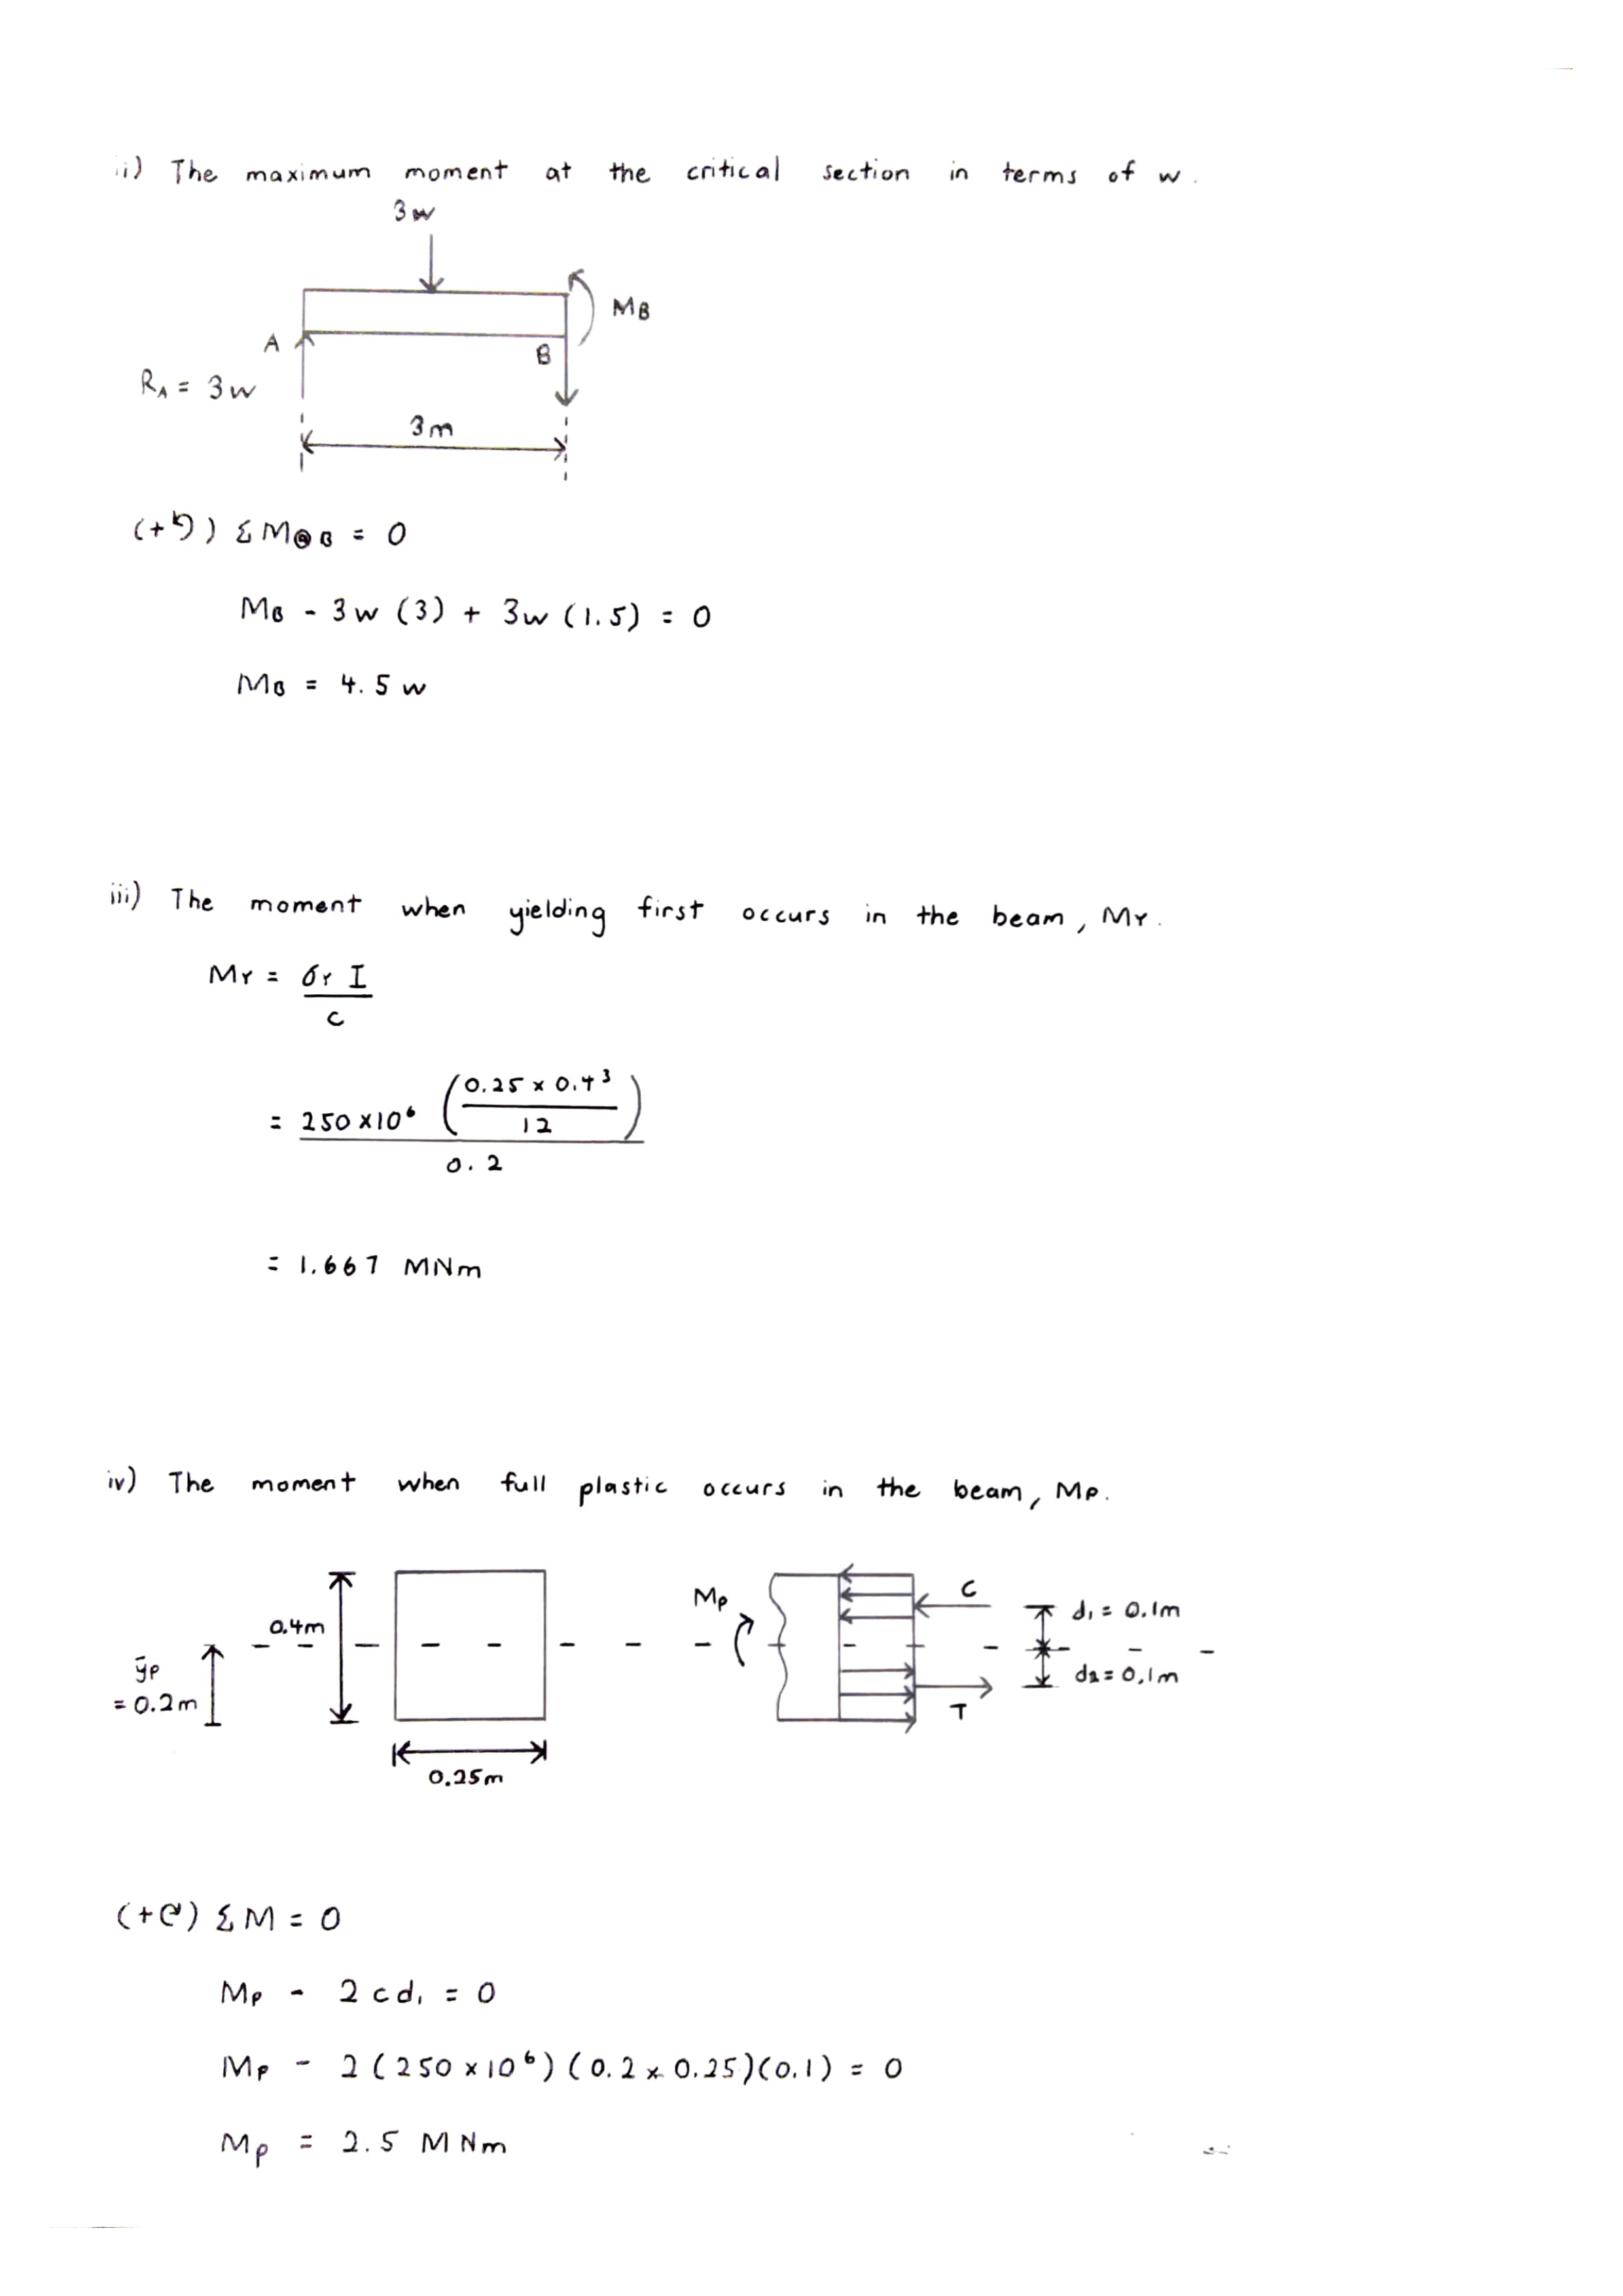 ii) The maximum moment at the critical section in terms of w.
3w
MB
A
B
RA = 3w
3m
(+↺) ΣM@B = 0
MB - 3w (3) + 3w (1.5) = 0
MB = 4.5 w
iii) The moment when yielding first occurs in the beam, MY.
MY = σY I
c
= 250 x10⁶ (0.25 x 0.4³
12)
0.2
= 1.667 MNm
iv) The moment when full plastic occurs in the beam, Mp.
Mp
C
d₁ = 0.1m
0.4m
ȳp
= 0.2m
d2 = 0.1m
T
0.25m
(+↻) ΣM = 0
Mp - 2cd₁ = 0
Mp - 2 (250 x 10⁶) (0.2 x 0.25)(0.1) = 0
Mp = 2.5 MNm